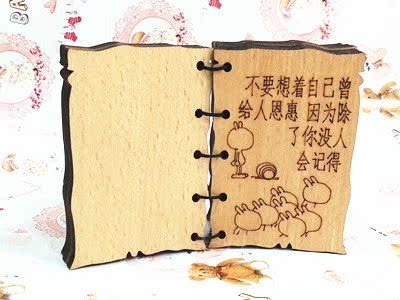 不要想着自己曾
给人恩惠 因为除
了你没人
会记得